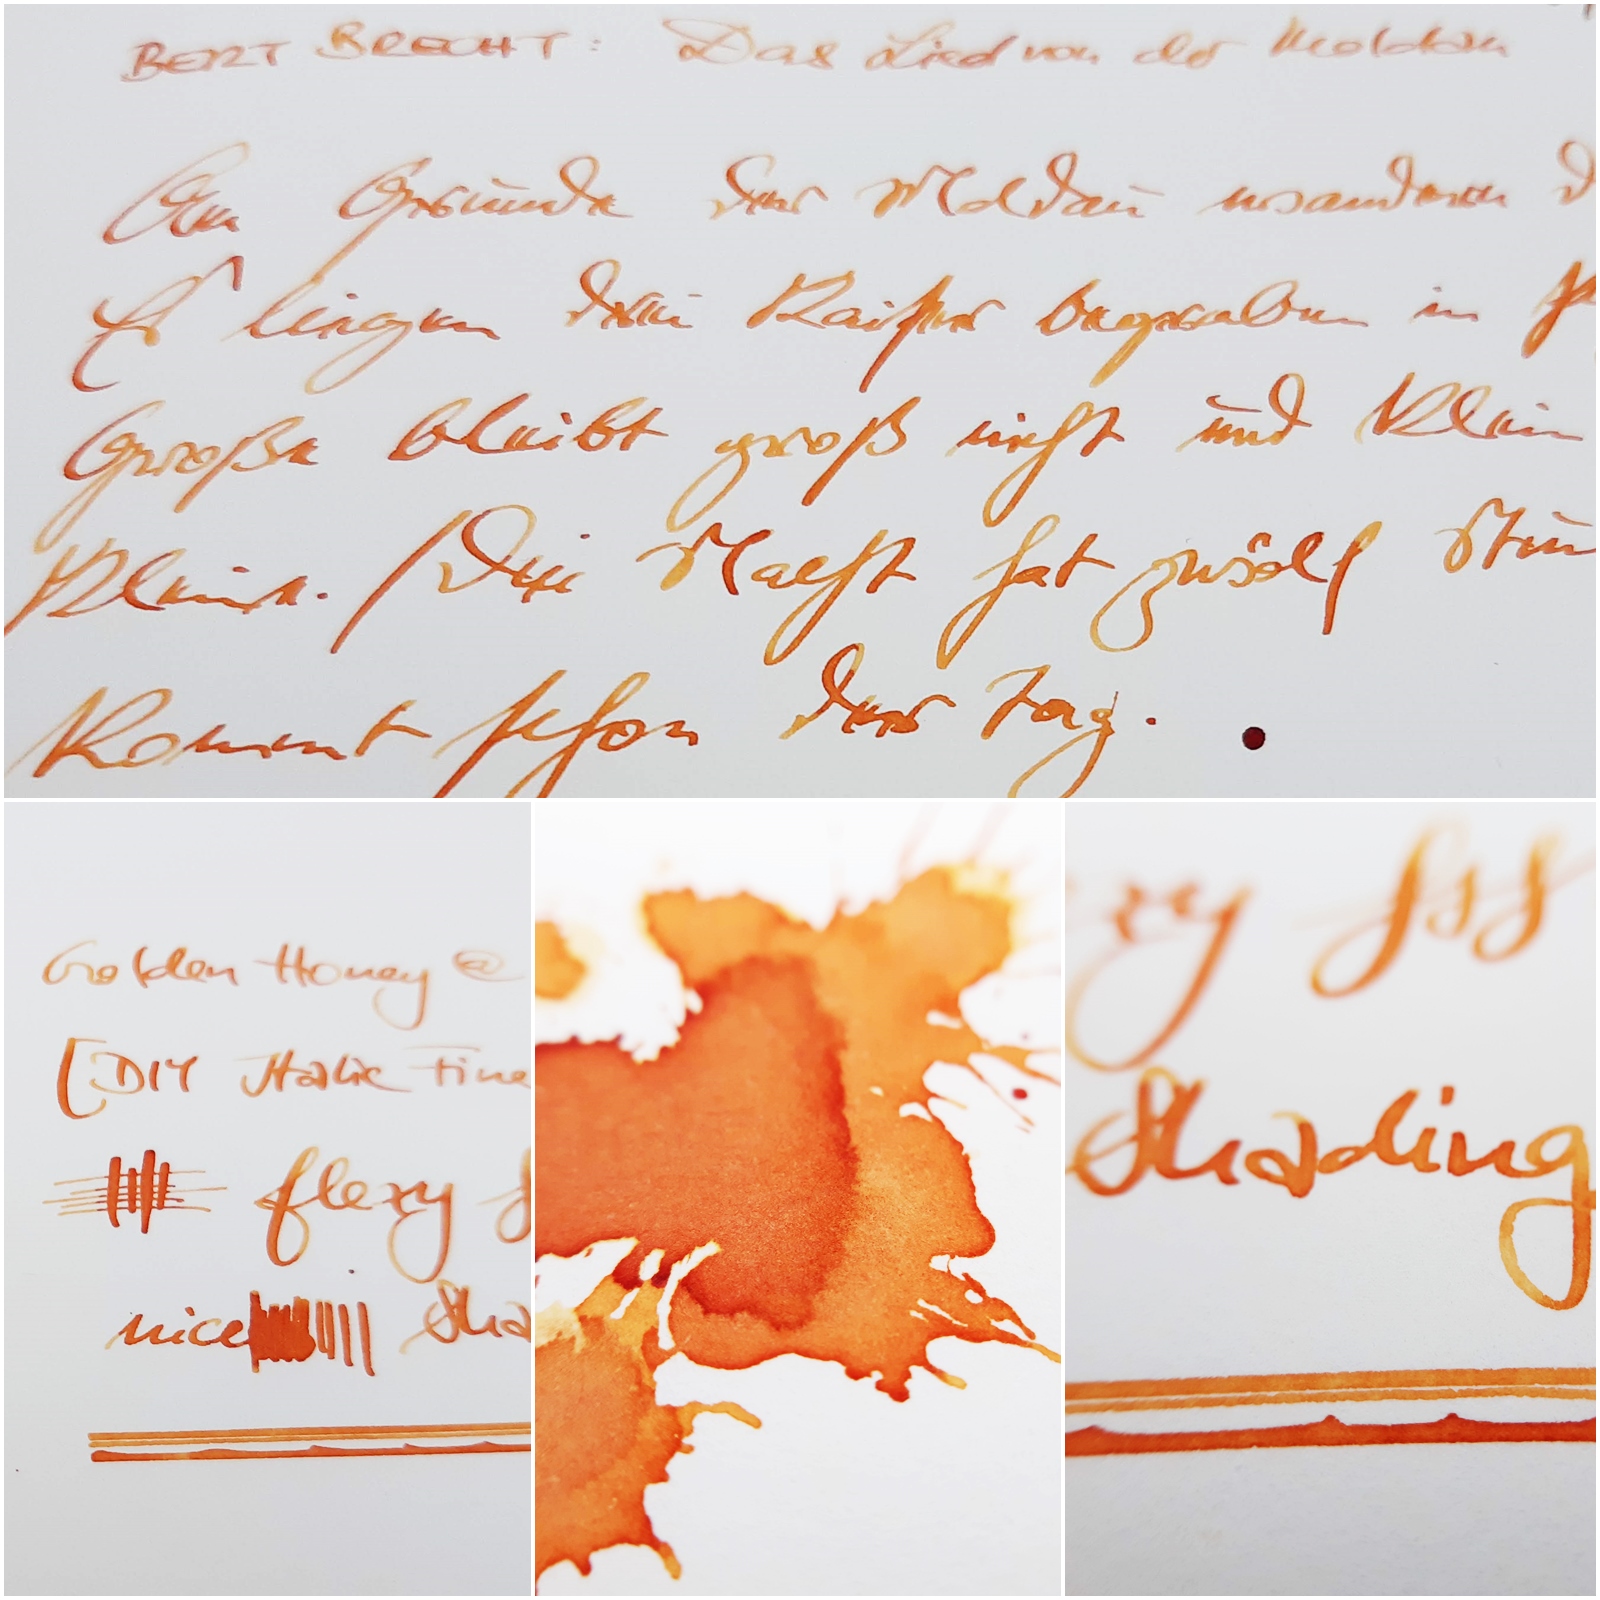 BERT BRECHT: Das Lied von der Moldau
Am Grunde der Moldau wandern d
Es liegen drei Kaiser begraben in P
Große bleibt groß nicht und klein
Kleine. Die Nacht hat zwölf Stun
Kommt schon der Tag.
Golden Honey @
[DIY Italic Fine
flexy f
nice Sha
xy fss
Shading